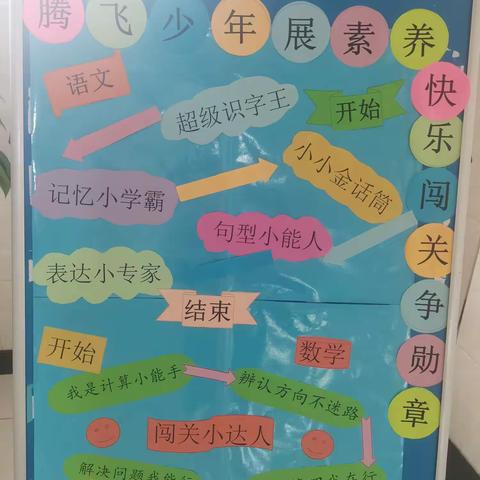 腾飞少年展素养
快乐闯关争勋章
语文
开始
超级识字王
记忆小学霸
小小金话筒
句型小能人
表达小专家
结束
开始
数学
我是计算小能手
辨认方向不迷路
闯关小达人
解决问题我能行
在行